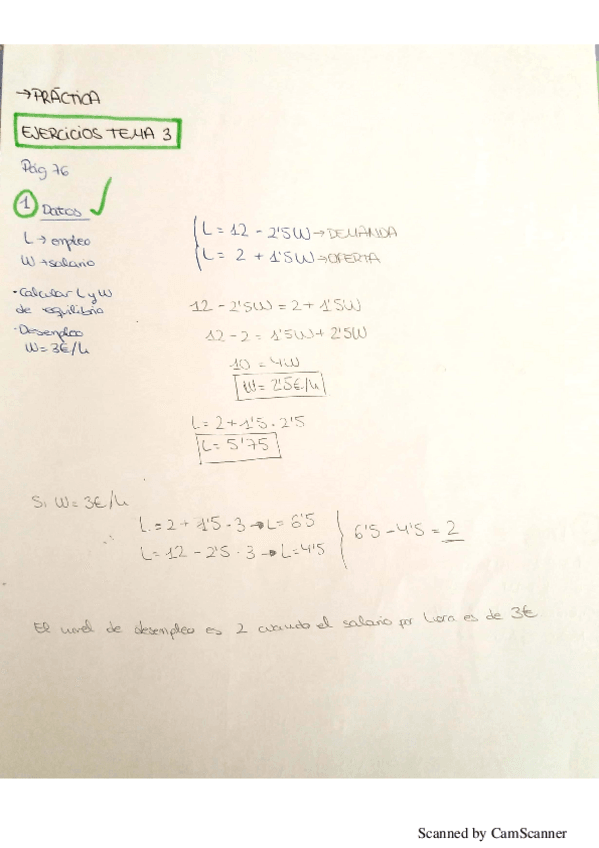 →PRÁCTICA
EJERCICIOS TEMA 3
Pág 76
1 Datos
L→ empleo
W→salario
•Calcular L y W
de equilibrio
•Desempleo
W=3€/h
L=12-2'5W→DEMANDA
L= 2+1'5W→OFERTA
12-2'5W=2+1'5W
12-2=1'5W+2'5W
10=4W
W=2'5€/h
L=2+1'5·2'5
L=5'75
Si W=3€/h
L=2+1'5·3→L=6'5
L=12-2'5·3→L=4'5
6'5-4'5=2
El nivel de desempleo es 2 cuando el salario por hora es de 3€
Scanned by CamScanner